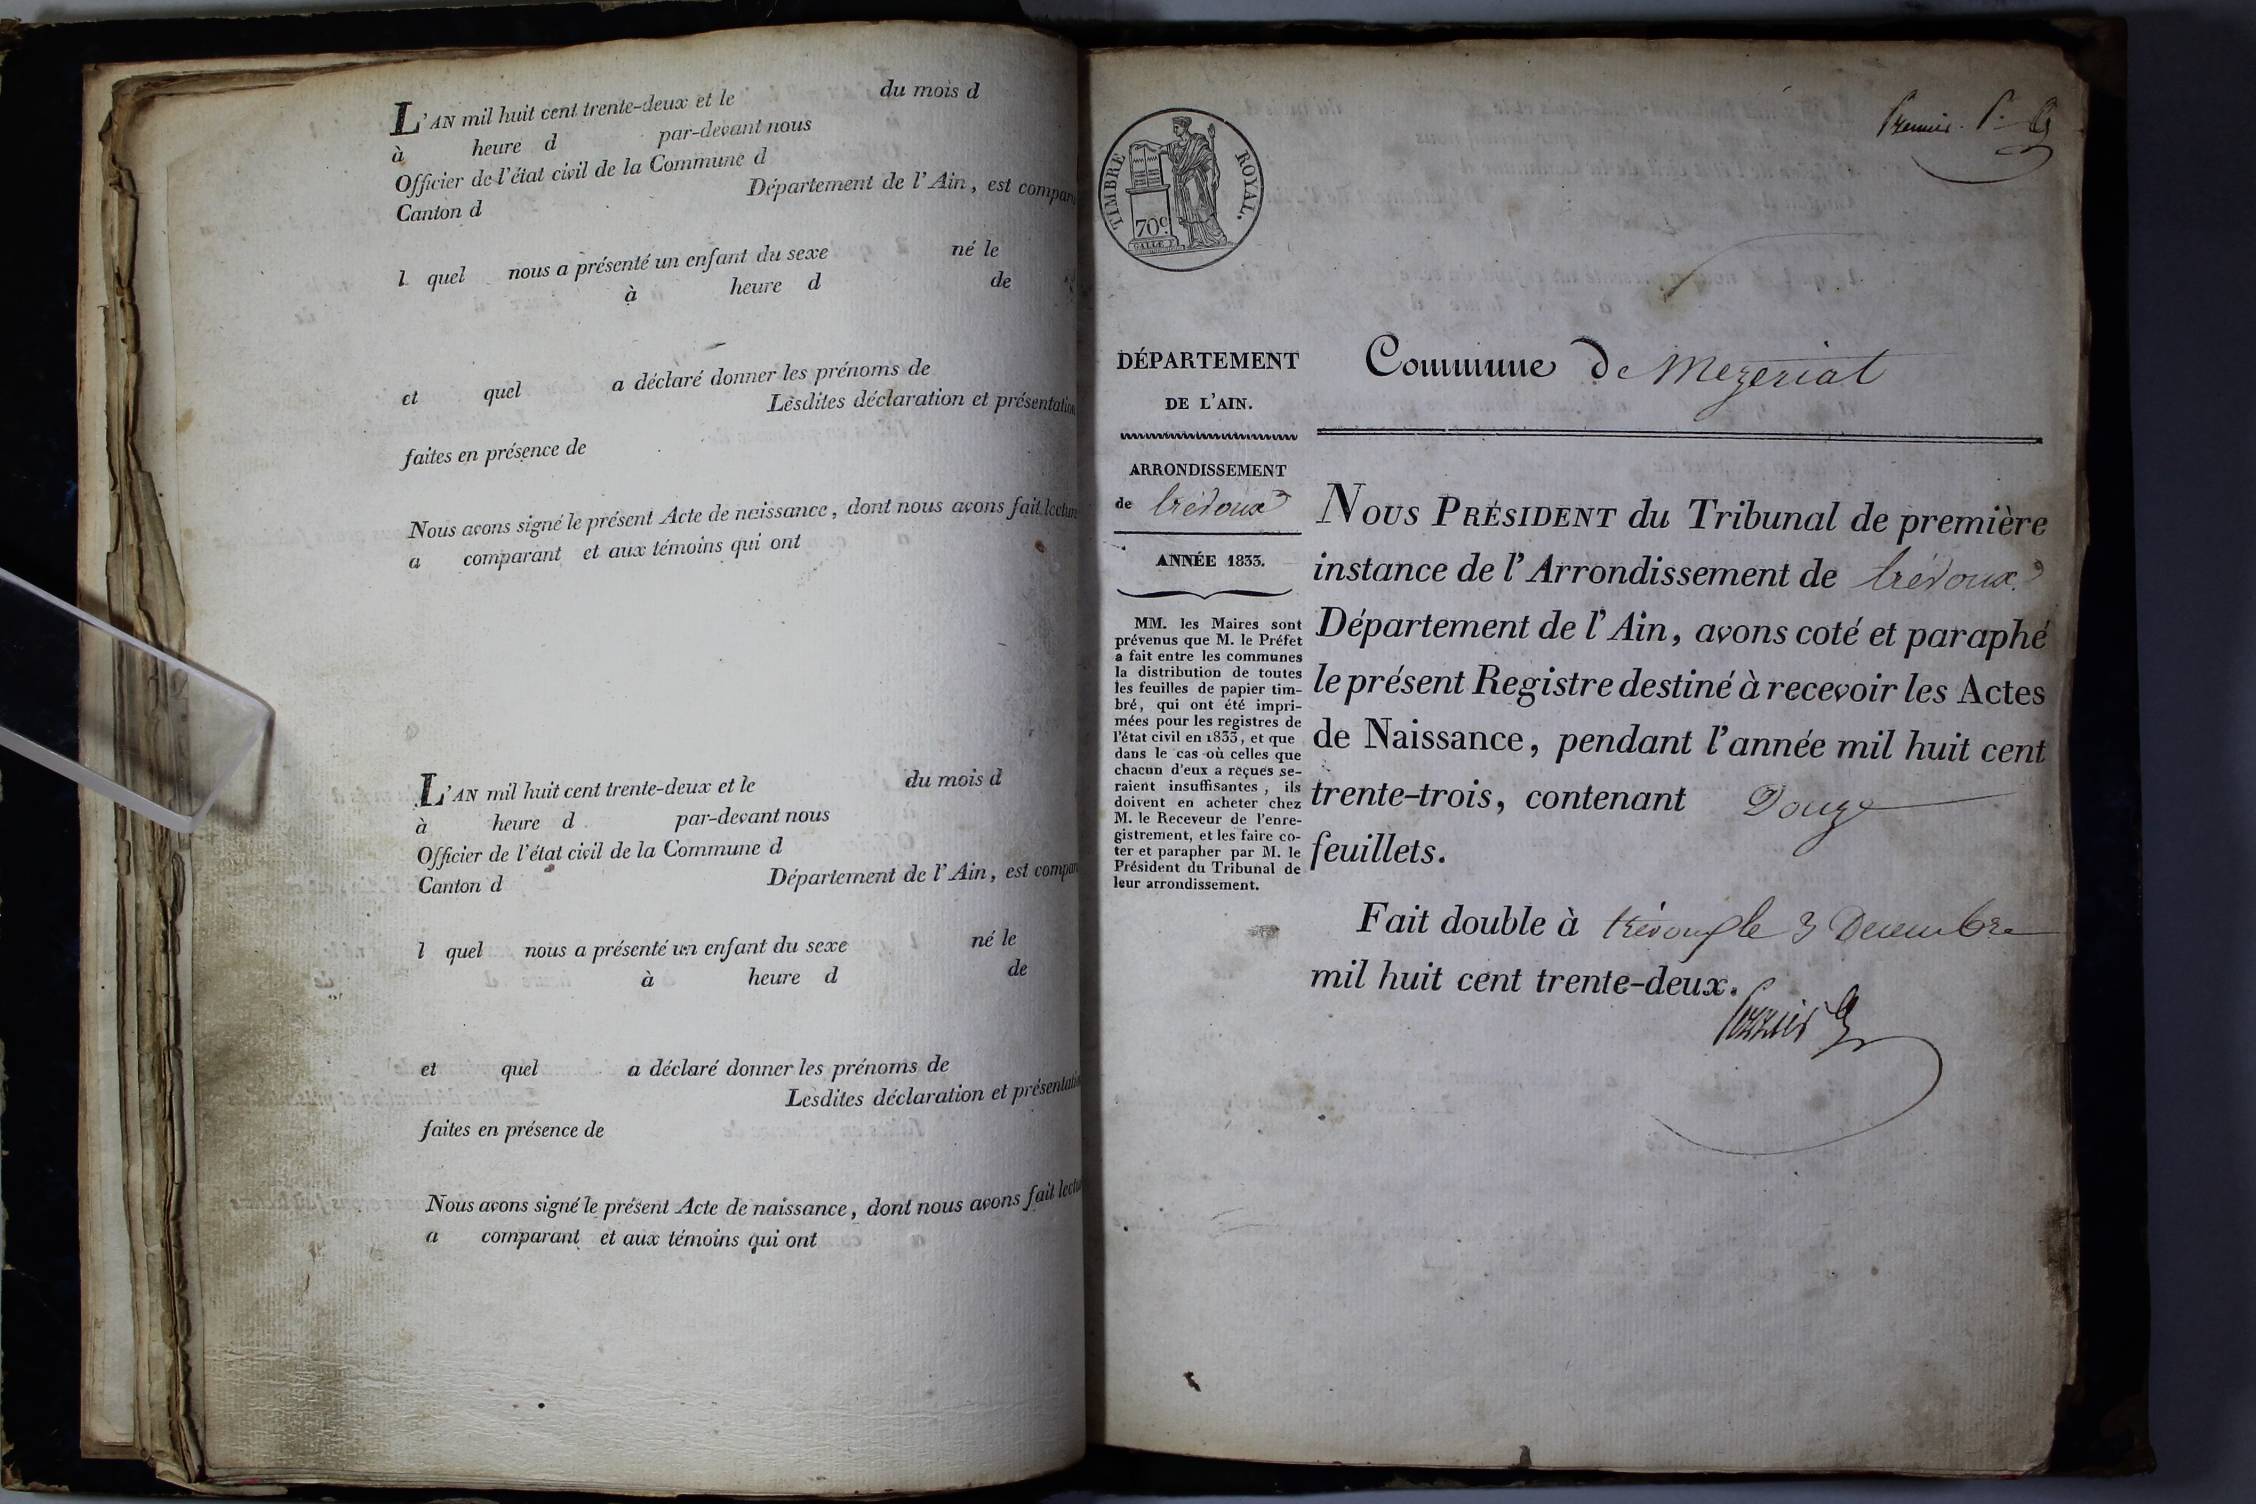 L'AN mil huit cent trente-deux et le du mois d
à heure d par-devant nous
Officier de l'état civil de la Commune d
Canton d Département de l'Ain, est compar
l quel nous a présenté un enfant du sexe né le
à heure d de
et quel a déclaré donner les prénoms de
Lesdites déclaration et présentation
faites en présence de
Nous avons signé le présent Acte de naissance, dont nous avons fait lecture
a comparant et aux témoins qui ont
L'AN mil huit cent trente-deux et le du mois d
à heure d par-devant nous
Officier de l'état civil de la Commune d
Canton d Département de l'Ain, est compar
l quel nous a présenté un enfant du sexe né le
à heure d de
et quel a déclaré donner les prénoms de
Lesdites déclaration et présentation
faites en présence de
Nous avons signé le présent Acte de naissance, dont nous avons fait lectu
a comparant et aux témoins qui ont
Premier
TIMBRE ROYAL.
70c
GALLE F
DÉPARTEMENT
DE L'AIN.
ARRONDISSEMENT
de Trévoux
ANNÉE 1833.
MM. les Maires sont
prévenus que M. le Préfet
a fait entre les communes
la distribution de toutes
les feuilles de papier tim-
bré, qui ont été impri-
mées pour les registres de
l'état civil en 1833, et que
dans le cas où celles que
chacun d'eux a reçues se-
raient insuffisantes, ils
doivent en acheter chez
M. le Receveur de l'enre-
gistrement, et les faire co-
ter et parapher par M. le
Président du Tribunal de
leur arrondissement.
Commune De Mezeriat
NOUS PRÉSIDENT du Tribunal de première
instance de l'Arrondissement de Trévoux
Département de l'Ain, avons coté et paraphé
le présent Registre destiné à recevoir les Actes
de Naissance, pendant l'année mil huit cent
trente-trois, contenant Douze
feuillets.
Fait double à Trévoux le 3 Decembre
mil huit cent trente-deux.